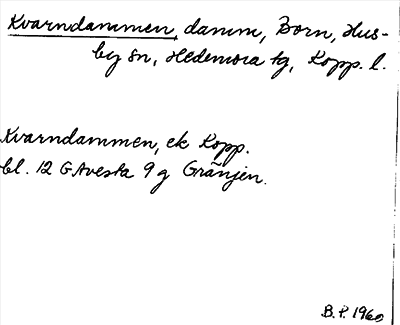 Kvarndammen, damm, Born, Hus-
by sn, Hedemora tg, Kopp. l.
Kvarndammen, ek Kopp.
bl. 12 G Avesta 9 g Gränjen.
B. P. 1960